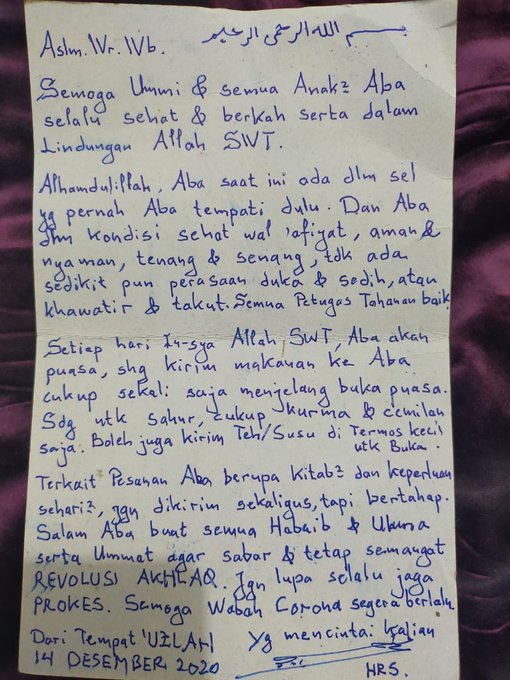 بسم الله الرحمن الرحيم
Aslm. Wr. Wb.
Semoga Ummi & semua Anak2 Aba
selalu sehat & berkah serta dalam
Lindungan Allah SWT.
Alhamdulillah, Aba saat ini ada dlm sel
yg pernah Aba tempati dulu. Dan Aba
dlm kondisi sehat wal 'afiyat, aman &
nyaman, tenang & senang, tdk ada
sedikit pun perasaan duka & sedih, atau
khawatir & takut. Semua Petugas Tahanan baik
Setiap hari In-sya Allah SWT, Aba akan
puasa, shg kirim makanan ke Aba
cukup sekali saja menjelang buka puasa.
Sdg utk Sahur, cukup kurma & cemilan
saja. Boleh juga kirim Teh/Susu di Termos kecil
utk Buka.
Terkait Pesanan Aba berupa kitab2 dan keperluan
sehari2, jgn dikirim sekaligus, tapi bertahap.
Salam Aba buat semua Habaib & Ulama
serta Ummat agar sabar & tetap semangat
REVOLUSI AKHLAQ. Jgn lupa selalu jaga
PROKES. Semoga Wabah Corona segera berlalu
Dari Tempat 'UZLAH
14 DESEMBER 2020
Yg mencintai kalian
HRS.